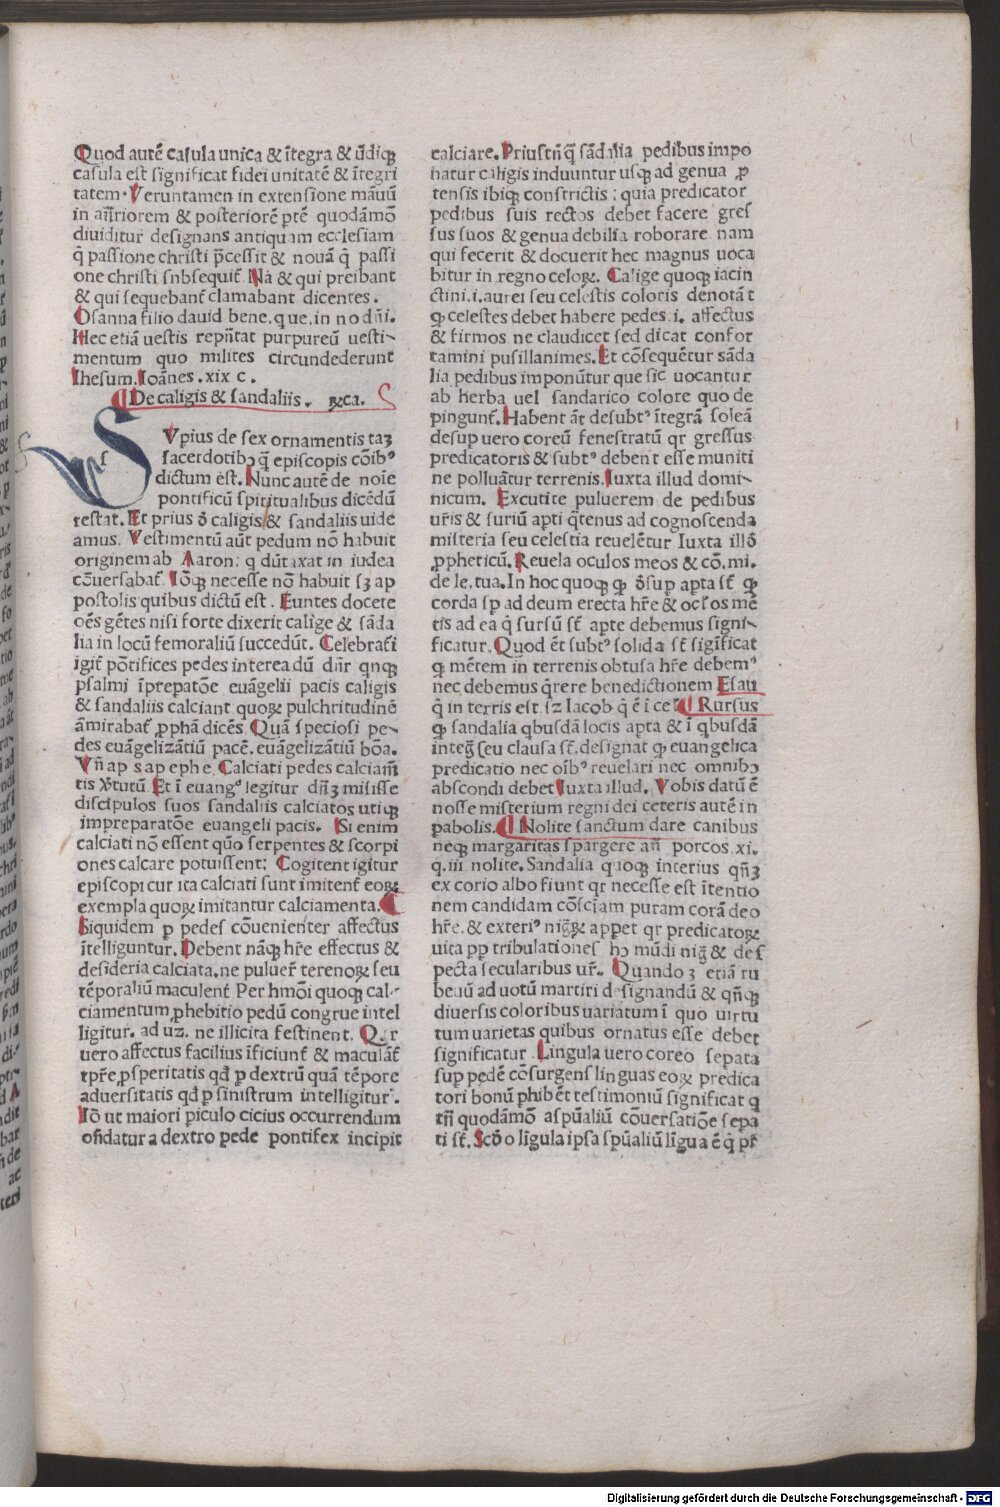 Quod autē casula unica & ītegra & ūdiqꝫ
casula est significat fidei unitatē & ītegri
tatem. Veruntamen in extensione māuū
in añriorem & posteriorē ꝑtē quodāmō
diuiditur designans antiquam ecclesiam
q̄ passione christi p̄cessit & nouā q̄ passi
one christi snbsequit̄. Nā & qui preibant
& qui sequebant̄ clamabant dicentes.
Osanna filio dauid bene. que. in no dñi.
Hec etiā uestis repn̄tat purpureū uesti-
mentum quo milites circundederunt
Ihesum. Ioānes. xix c.
De caligis & sandaliis. ꝝca.
SVpius de sex ornamentis taꝫ
sacerdotibꝫ q̄ episcopis cōibꝰ
dictum est. Nunc autē de noīe
pontificū spiritualibus dicēdū
restat. Et prius ō caligis & sandaliis uide
amus. Vestimentū aūt pedum nō habuit
originem ab Aaron: q dūtaxat in iudea
cōuersabat̄. Iōqꝫ necesse nō habuit sꝫ ap
postolis quibus dictū est. Euntes docete
oēs gētes nisi forte dixerit calige & sāda
lia in locū femoraliū succedūt. Celebrat̄i
igit̄ pōtifices pedes interea dū dāt̄ qnqꝫ
psalmi īprepatōe euāgelii pacis caligis
& sandaliis calciant quoꝝ pulchritudinē
āmirabat̄ ꝓphā dicēs. Quā speciosi pe-
des euāgelizātiū pacē. euāgelizātiū bōa.
Vñ ap s ap ephe. Calciati pedes calciam̄
tis v̄tutū. Et ī euangꝰ legitur dn̄ꝫ misisse
discipulos suos sandaliis calciatos utiqꝫ
impreparatōe euangeli pacis. Si enim
calciati nō essent quō serpentes & scorpi
ones calcare potuissent: Cogitent igitur
episcopi cur ita calciati sunt imitent̄ eoꝝ
exempla quoꝝ imitantur calciamenta.
Siquidem ꝑ pedes cōuenienter affectus
ītelliguntur. Debent nāqꝫ hr̄e effectus &
desideria calciata. ne puluer̄ terenoꝝ seu
tēporaliū maculent̄ Per hmōi quoqꝫ cal-
ciamentum ꝓhebitio pedū congrue intel
ligitur. ad uꝫ. ne illicita festinent. Qur
uero affectus facilius īficiunt̄ & maculāt̄
tꝑre ꝓsperitatis qd̄ ꝑ dextrū quā tēpore
aduersitatis qd̄ ꝑ sinistrum intelligitur.
Iō ut maiori piculo cicius occurrendum
on̄datur a dextro pede pontifex incipit
calciare. Priustn̄ q̄ sādalia pedibus impo
natur caligis induuntur usqꝫ ad genua ꝓ
tensis ibiqꝫ constrictis: quia predicator
pedibus suis rectos debet facere gres
sus suos & genua debilia roborare. nam
qui fecerit & docuerit hec magnus uoca
bitur in regno celoꝝ. Calige quoqꝫ iacin
ctini. i. aurei seu celestis coloris denotāt
qꝫ celestes debet habere pedes. i. affectus
& firmos ne claudicet sed dicat confor
tamini pusillanimes. Et cōsequētur sāda
lia pedibus imponūtur que sic uocantur
ab herba uel sandarico colore quo de
pingunt̄. Habent āt desubtꝰ ītegrā soleā
desup uero coreū fenestratū qr gressus
predicatoris & subtꝰ debent esse muniti
ne polluātur terrenis. Iuxta illud domi-
nicum. Excutite puluerem de pedibus
ur̄is & suriū apti q̄tenus ad cognoscenda
misteria seu celestia reuelētur Iuxta illō
ꝓpheticū. Reuela oculos meos & cō. mi.
de le. tua. In hoc quoqꝫ qꝫ ōsuꝑ apta st̄ qꝫ
corda sꝑ ad deum erecta hr̄e & oc̄l̄os mē
tis ad ea q̄ sursū st̄ apte debemus signi-
ficatur. Quod ēt subtꝰ solida st̄ significat
qꝫ mētem in terrenis obtusa hr̄e debemꝰ
nec debemus q̄rere benedictionem Esau
q̄ in terris est. sꝫ Iacob q̄ ē ī cel̄ Rursus
qꝫ sandalia qbusdā locis apta & ī qbusdā
inteḡ seu clausa st̄. designat qꝫ euangelica
predicatio nec oībꝰ reuelari nec omnibꝫ
abscondi debet Iuxta illud. Vobis datū ē
nosse misterium regni dei ceteris autē in
pabolis. Nolite sanctum dare canibus
neqꝫ margaritas spargere an̄ porcos. xi.
q. iii nolite. Sandalia quoqꝫ interius qn̄ꝫ
ex corio albo fiunt qr necesse est ītentio
nem candidam cōsciam puram corā deo
hr̄e. & exteriꝰ niḡꝝ appet qr predicatoꝝ
uita ꝓp tribulationes hꝫ mūdi niḡ & des
pecta secularibus ur̄. Quandoꝫ etiā ru
beuū ad uotū martiri designandū & qn̄qꝫ
diuersis coloribus uariatum ī quo uirtu
tum uarietas quibus ornatus esse debet
significatur. Lingula uero coreo sepata
suꝑ pedē cōsurgens linguas eoꝝ predica
tori bonū ꝓhibēt testimoniū significat q
tn̄ quodāmō a spūaliū cōuersatiōe sepa
ti st̄. Scōo ligula ipsa spūaliū līgua ē q̄ pr̄
Digitalisierung gefördert durch die Deutsche Forschungsgemeinschaft - DFG